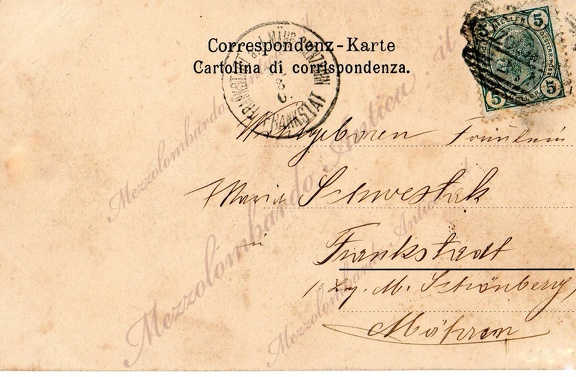 Correspondenz-Karte
Cartolina di corrispondenza.
5
5 5
FRANKSTADT
FRANKSTAT
Wohlgeboren Fräulein
Marie Schwestak
in
Frankstadt
M. Schönberg
Mähren
Mezzolombardo Antica it
Mezzolombardo Antica it
Mezzolombardo Antica it